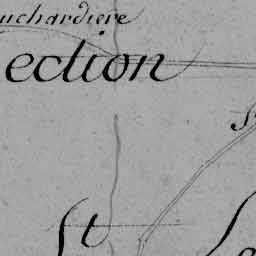 uchardiere
ection
St